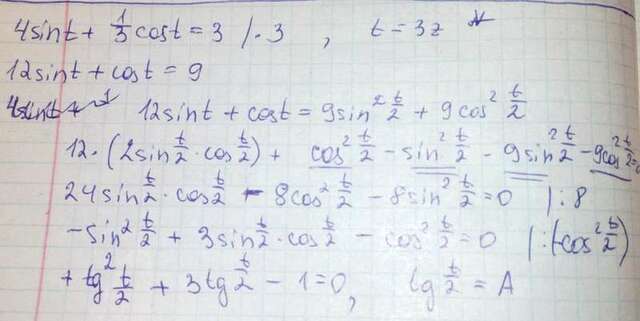 4sint + 1/3 cost = 3 / · 3 , t = 3z
12sint + cost = 9
12sint + cost = 9sin² t/2 + 9cos² t/2
12·(2sin t/2 · cos t/2) + cos² t/2 - sin² t/2 - 9sin² t/2 - 9cos² t/2 = 0
24sin t/2 · cos t/2 - 8cos² t/2 - 8sin² t/2 = 0 | : 8
-sin² t/2 + 3sin t/2 · cos t/2 - cos² t/2 = 0 | : (-cos² t/2)
+ tg² t/2 + 3tg t/2 - 1 = 0, tg t/2 = A